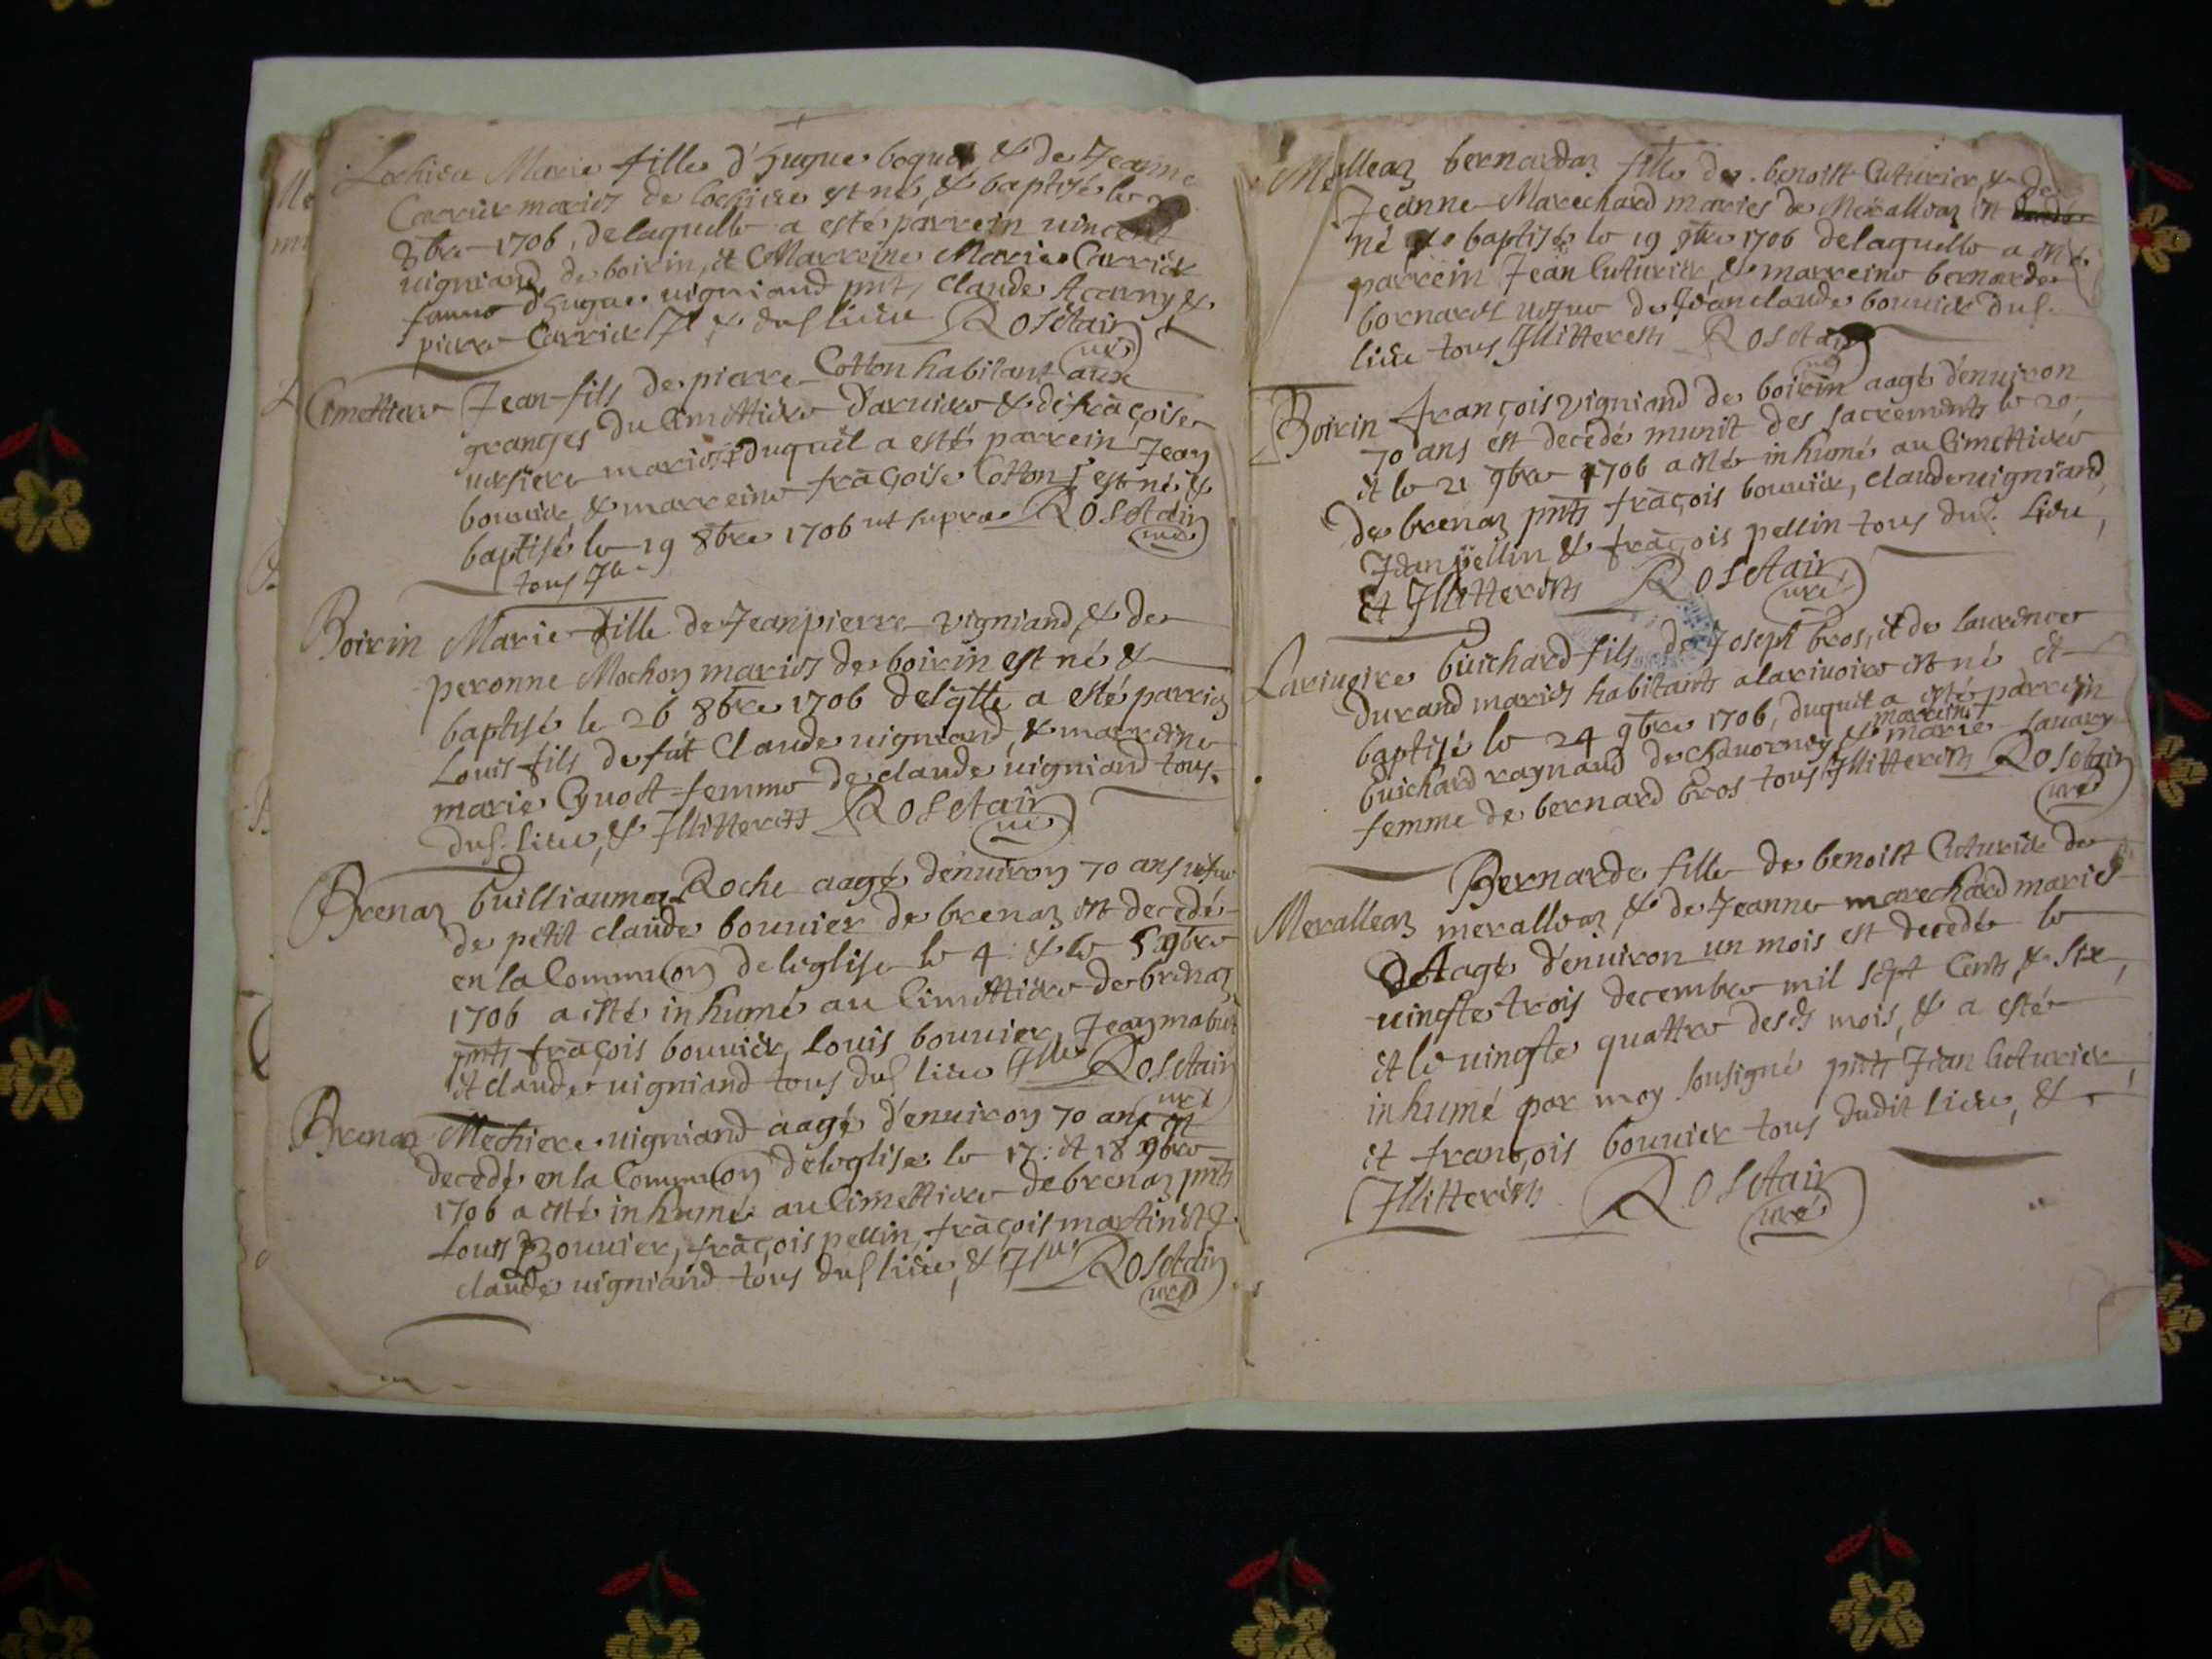 Lochieu Marie fille d'hugue boques & de Jeanne
Carrier mariés de lochieu est né, & baptisé le
8bre 1706, delaquelle a esté parrein vincent
uigniand de boirin, et Marreine Marie Carrier
femme d'hugue uigniand pnts claude Acarny &
pierre Carrier Jll & dus lieu Rosetain
curé
Cimettiere Jean fils de pierre Cotton habitant aux
granges du Cimettiere d'aruiere & de frãçoise
uersiere mariés duquel a esté parrein Jean
bouuier, & marreine frãçoise Cotton est né &
baptisé le 19 8bre 1706 ut supra Rosetain
curé
tous Jll
Boirin Marie fille de Jeanpierre vigniand, & de
peronne Mochon mariés de boirin est né &
baptisé le 26 8bre 1706 delqlle a esté parrein
Louis fils de fut Claude uigniand, & marreine
marie Cyuoct femme de claude uigniand tous
dus. lieu, & Jllitterés Rosetain
curé
Brenaz Guilliauma Roche aagé d'enuiron 70 ans uefue
de petit claude bouuier de brenaz est decedé
en la Commuon deleglise le 4 & le 5 9bre
1706 a esté inhumé au Cimettiere de brenaz
pnts frãçois bouuier, Louis bouuier, Jean
et claude uigniand tous dus lieu Jlle Rosetain
curé
Brenaz Mechiere uigniand aagé d'enuiron 70 ans est
decedé en la Commuon deleglise le 17: et 18 9bre
1706 a esté inhumé au Cimettiere de brenaz pnts
Louis Bouuier, frãçois pellin, frãçois martinet &
claude uigniand tous dus lieu, & Jlles Rosetain
curé
bernardaz fille de benoist Cuturier, & de
Jeanne Marechard mariés de Meralleaz est
né & baptisé le 19 9bre 1706 delaquelle a esté
parrein Jean Cuturier, & marreine bernarde
bornard uefue de Jeanclaude bouuier dus.
lieu tous Jllitterests Rosetain
curé
Boirin françois vigniand de boirin aagé d'enuiron
70 ans est decedé munit des sacrements le 20,
et le 21 9bre 1706 a esté inhumé au Cimettiere
de brenaz pnts frãçois bouuier, claude uigniand,
Jean pellin & frãçois pellin tous dus. Lieu,
et Jllitterests Rosetain
curé
Lariuoire Guichard fils de Joseph Gros, et de laurence
Durand mariés habitants alariuoire est né et
baptisé le 24 9bre 1706, duquel a esté parrein
Guichard raynaud de chauorney & marreine marie sauary
femme de bernard Gros tous Jllitterests Rosetain
curé
Bernarde fille de benoist Cuturier de
Meralleaz meralleaz & de Jeanne marechard mariés
aagé d'enuiron un mois est decedée le
uingtetrois decembre mil sept Cents & six,
et le uingte quattre desd mois, & a esté
inhumé par moy sousigné pnts Jean Cuturier
et françois bouuier tous dudit lieu, &
Jllitterests Rosetain
curé